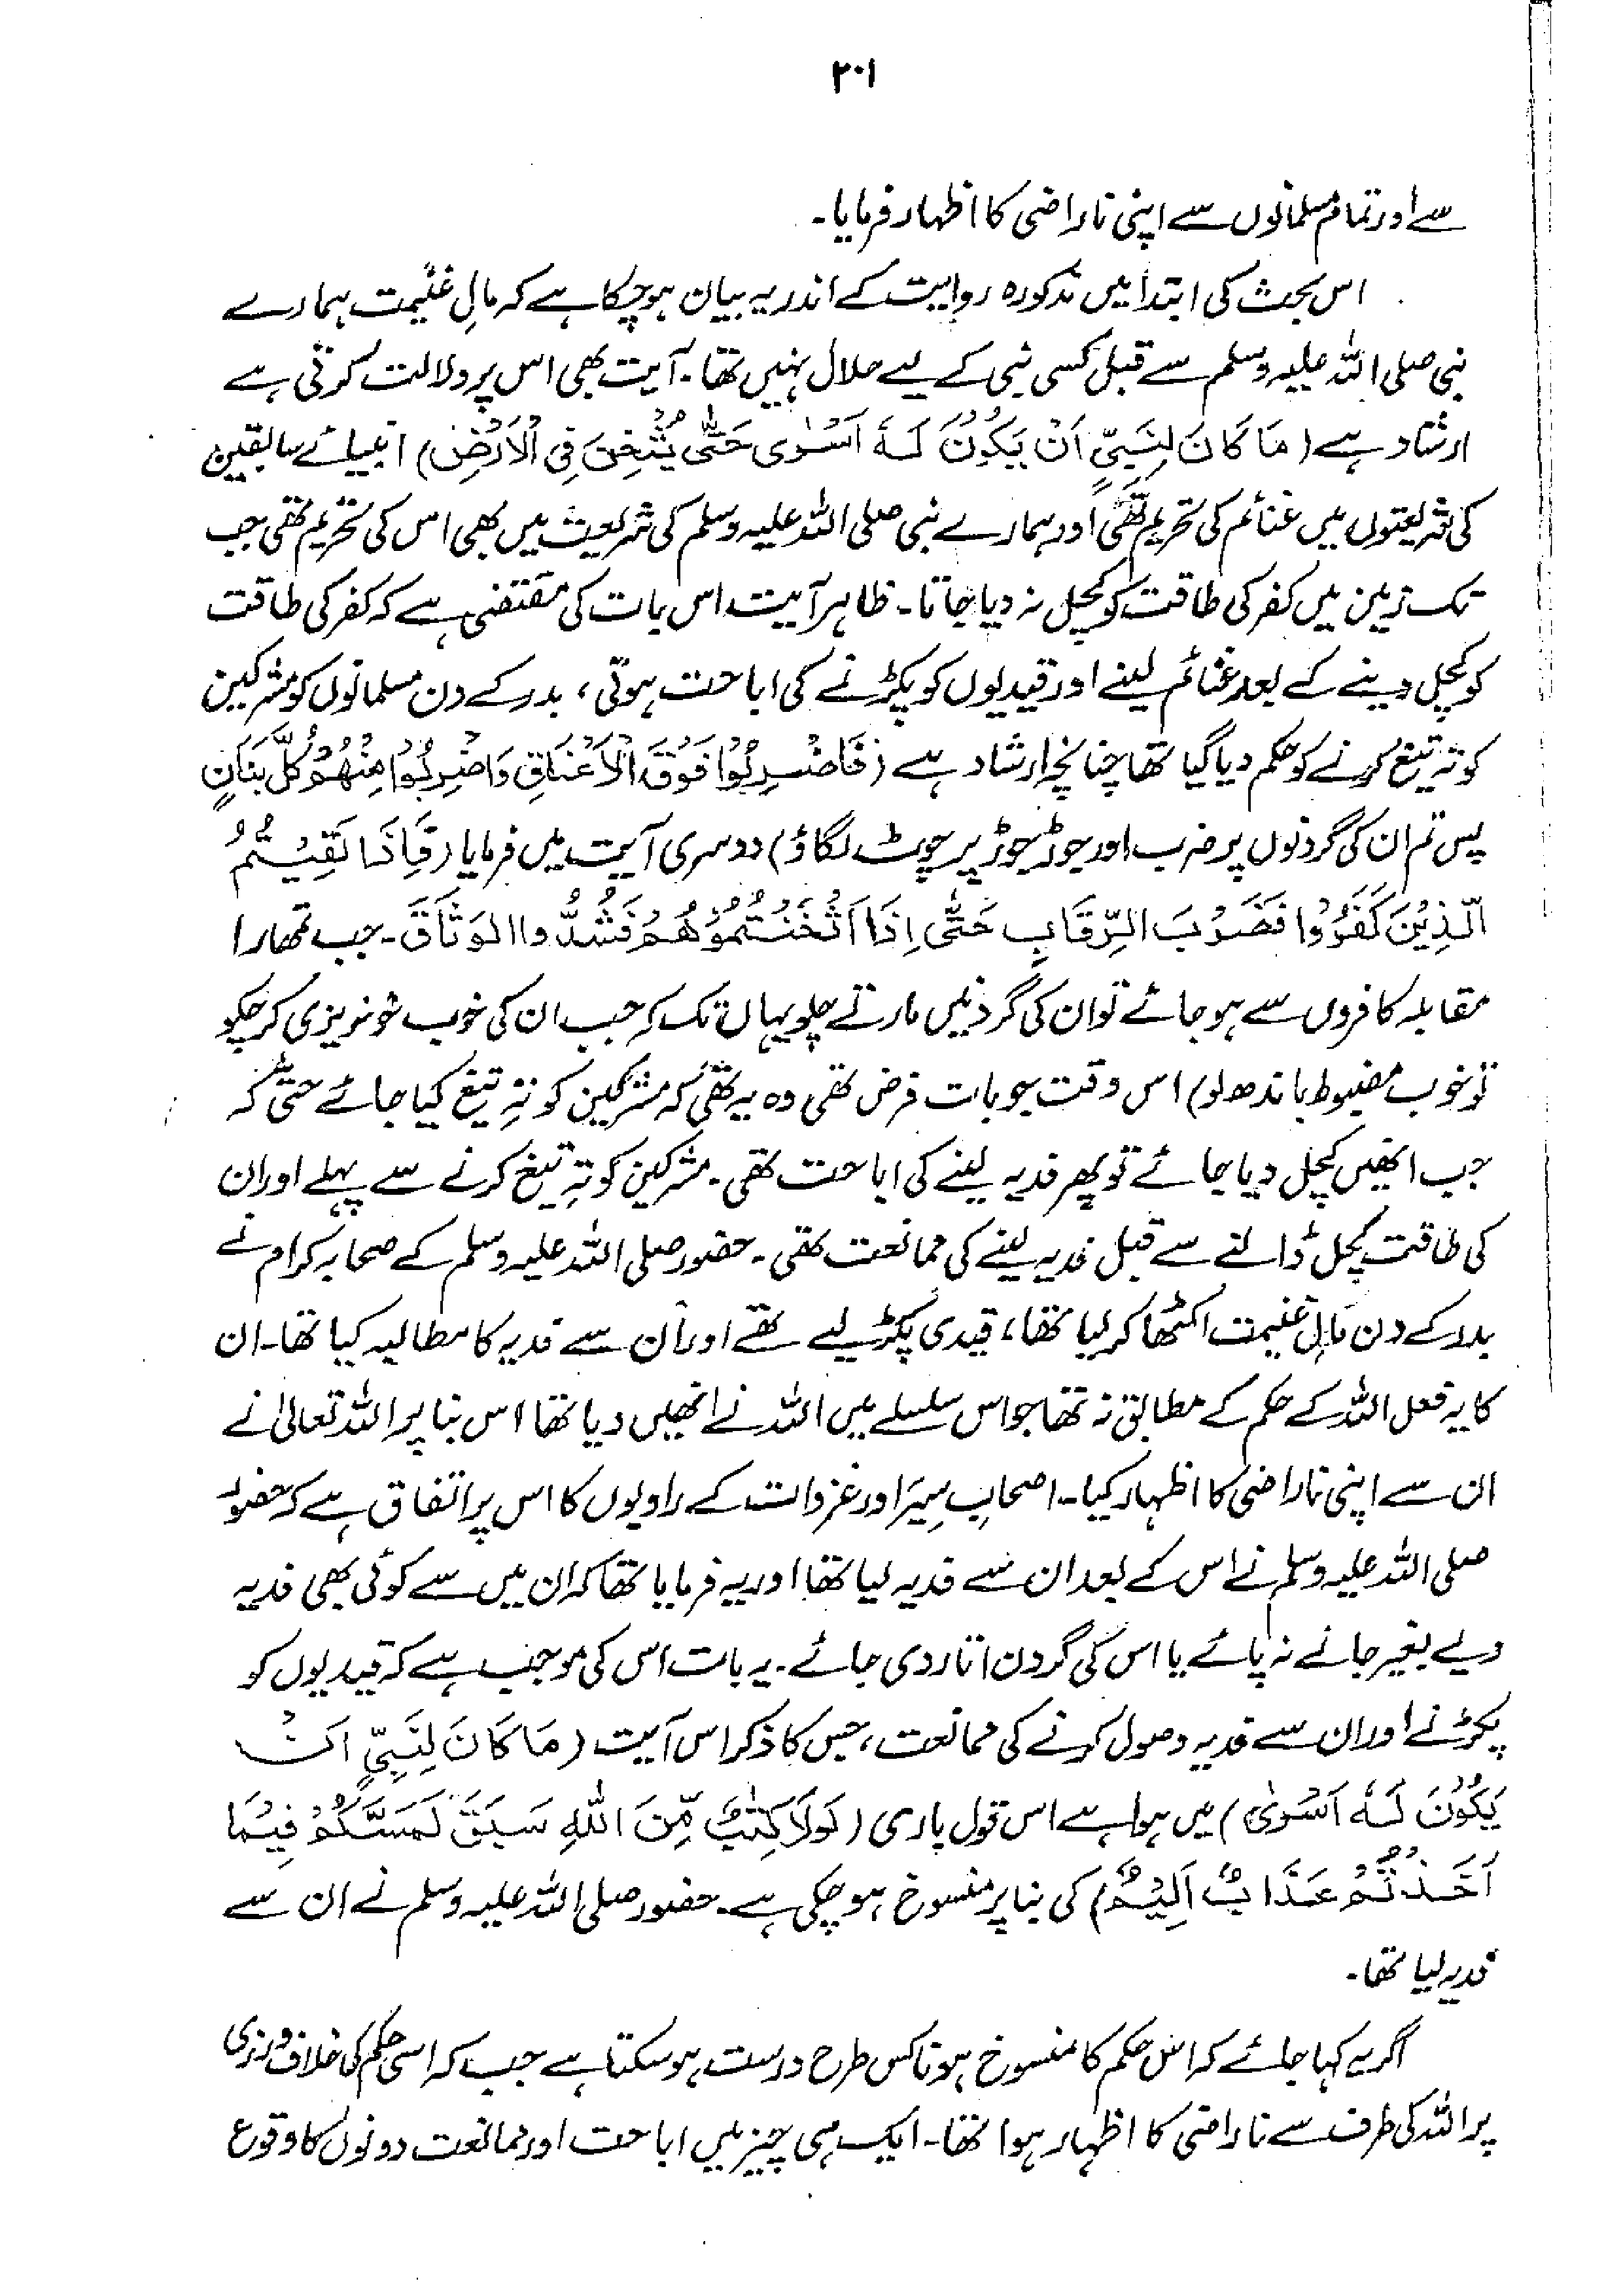 ۲۰۱
سے اور تمام مسلمانوں سے اپنی ناراضی کا اظہار فرمایا۔
اس بحث کی ابتدا میں مذکورہ روایت کے اندر یہ بیان ہو چکا ہے کہ مالِ غنیمت ہمارے
نبی صلی اللہ علیہ وسلم سے قبل کسی نبی کے لیے حلال نہیں تھا۔ آیت بھی اس پر دلالت کرتی ہے
ارشاد ہے (مَا كَانَ لِنَبِيٍّ اَنْ يَكُوْنَ لَهٗ اَسْرٰى حَتّٰى يُثْخِنَ فِي الْاَرْضِ) انبیائے سابقین
کی شریعتوں میں غنائم کی تحریم تھی اور ہمارے نبی صلی اللہ علیہ وسلم کی شریعت میں بھی اس کی تحریم تھی جب
تک زمین میں کفر کی طاقت کو کچل نہ دیا جاتا۔ ظاہر آیت اس بات کی مقتضی ہے کہ کفر کی طاقت
کو کچل دینے کے بعد غنائم لینے اور قیدیوں کو پکڑنے کی اباحت ہوتی، بدر کے دن مسلمانوں کو مشرکین
کو تہِ تیغ کرنے کو حکم دیا گیا تھا چنانچہ ارشاد ہے (فَاضْرِبُوْا فَوْقَ الْاَعْنَاقِ وَاضْرِبُوْا مِنْهُمْ كُلَّ بَنَانٍ
پس تم ان کی گردنوں پر ضرب اور جوڑ جوڑ پر چوٹ لگاؤ) دوسری آیت میں فرمایا (فَاِذَا لَقِيْتُمُ
الَّذِيْنَ كَفَرُوْا فَضَرْبَ الرِّقَابِ حَتّٰى اِذَا اَثْخَنْتُمُوْهُمْ فَشُدُّوا الْوَثَاقَ۔ جب تمھارا
مقابلہ کافروں سے ہو جائے تو ان کی گردنیں مارتے چلو یہاں تک کہ جب ان کی خوب خونریزی کر چکو
تو خوب مضبوط باندھ لو) اس وقت جو بات فرض تھی وہ یہ تھی کہ مشرکین کو تہِ تیغ کیا جائے حتٰی کہ
جب انھیں کچل دیا جائے تو پھر فدیہ لینے کی اباحت تھی۔ مشرکین کو تہِ تیغ کرنے سے پہلے اور ان
کی طاقت کچل ڈالنے سے قبل فدیہ لینے کی ممانعت تھی۔ حضور صلی اللہ علیہ وسلم کے صحابہ کرام نے
بدر کے دن مالِ غنیمت اکٹھا کر لیا تھا، قیدی پکڑ لیے تھے اور ان سے فدیہ کا مطالبہ کیا تھا۔ ان
کا یہ فعل اللہ کے حکم کے مطابق نہ تھا جو اس سلسلے میں اللہ نے انھیں دیا تھا اس بنا پر اللہ تعالیٰ نے
ان سے اپنی ناراضی کا اظہار کیا۔ اصحابِ سِیَر اور غزوات کے راویوں کا اس پر اتفاق ہے کہ حضور
صلی اللہ علیہ وسلم نے اس کے بعد ان سے فدیہ لیا تھا اور یہ فرمایا تھا کہ ان میں سے کوئی بھی فدیہ
دیے بغیر جانے نہ پائے یا اس کی گردن اتار دی جائے۔ یہ بات اس کی موجب ہے کہ قیدیوں کو
پکڑنے اور ان سے فدیہ وصول کرنے کی ممانعت، جس کا ذکر اس آیت (مَا كَانَ لِنَبِيٍّ اَنْ
يَكُوْنَ لَهٗ اَسْرٰى) میں ہوا ہے اس قول باری (لَوْلَا كِتٰبٌ مِّنَ اللّٰهِ سَبَقَ لَمَسَّكُمْ فِيْمَا
اَخَذْتُمْ عَذَابٌ اَلِيْمٌ) کی بنا پر منسوخ ہو چکی ہے۔ حضور صلی اللہ علیہ وسلم نے ان سے
فدیہ لیا تھا۔
اگر یہ کہا جائے کہ اس حکم کا منسوخ ہونا کس طرح درست ہو سکتا ہے جب کہ اسی حکم کی خلاف ورزی
پر اللہ کی طرف سے ناراضی کا اظہار ہوا تھا۔ ایک ہی چیز میں اباحت اور ممانعت دونوں کا وقوع